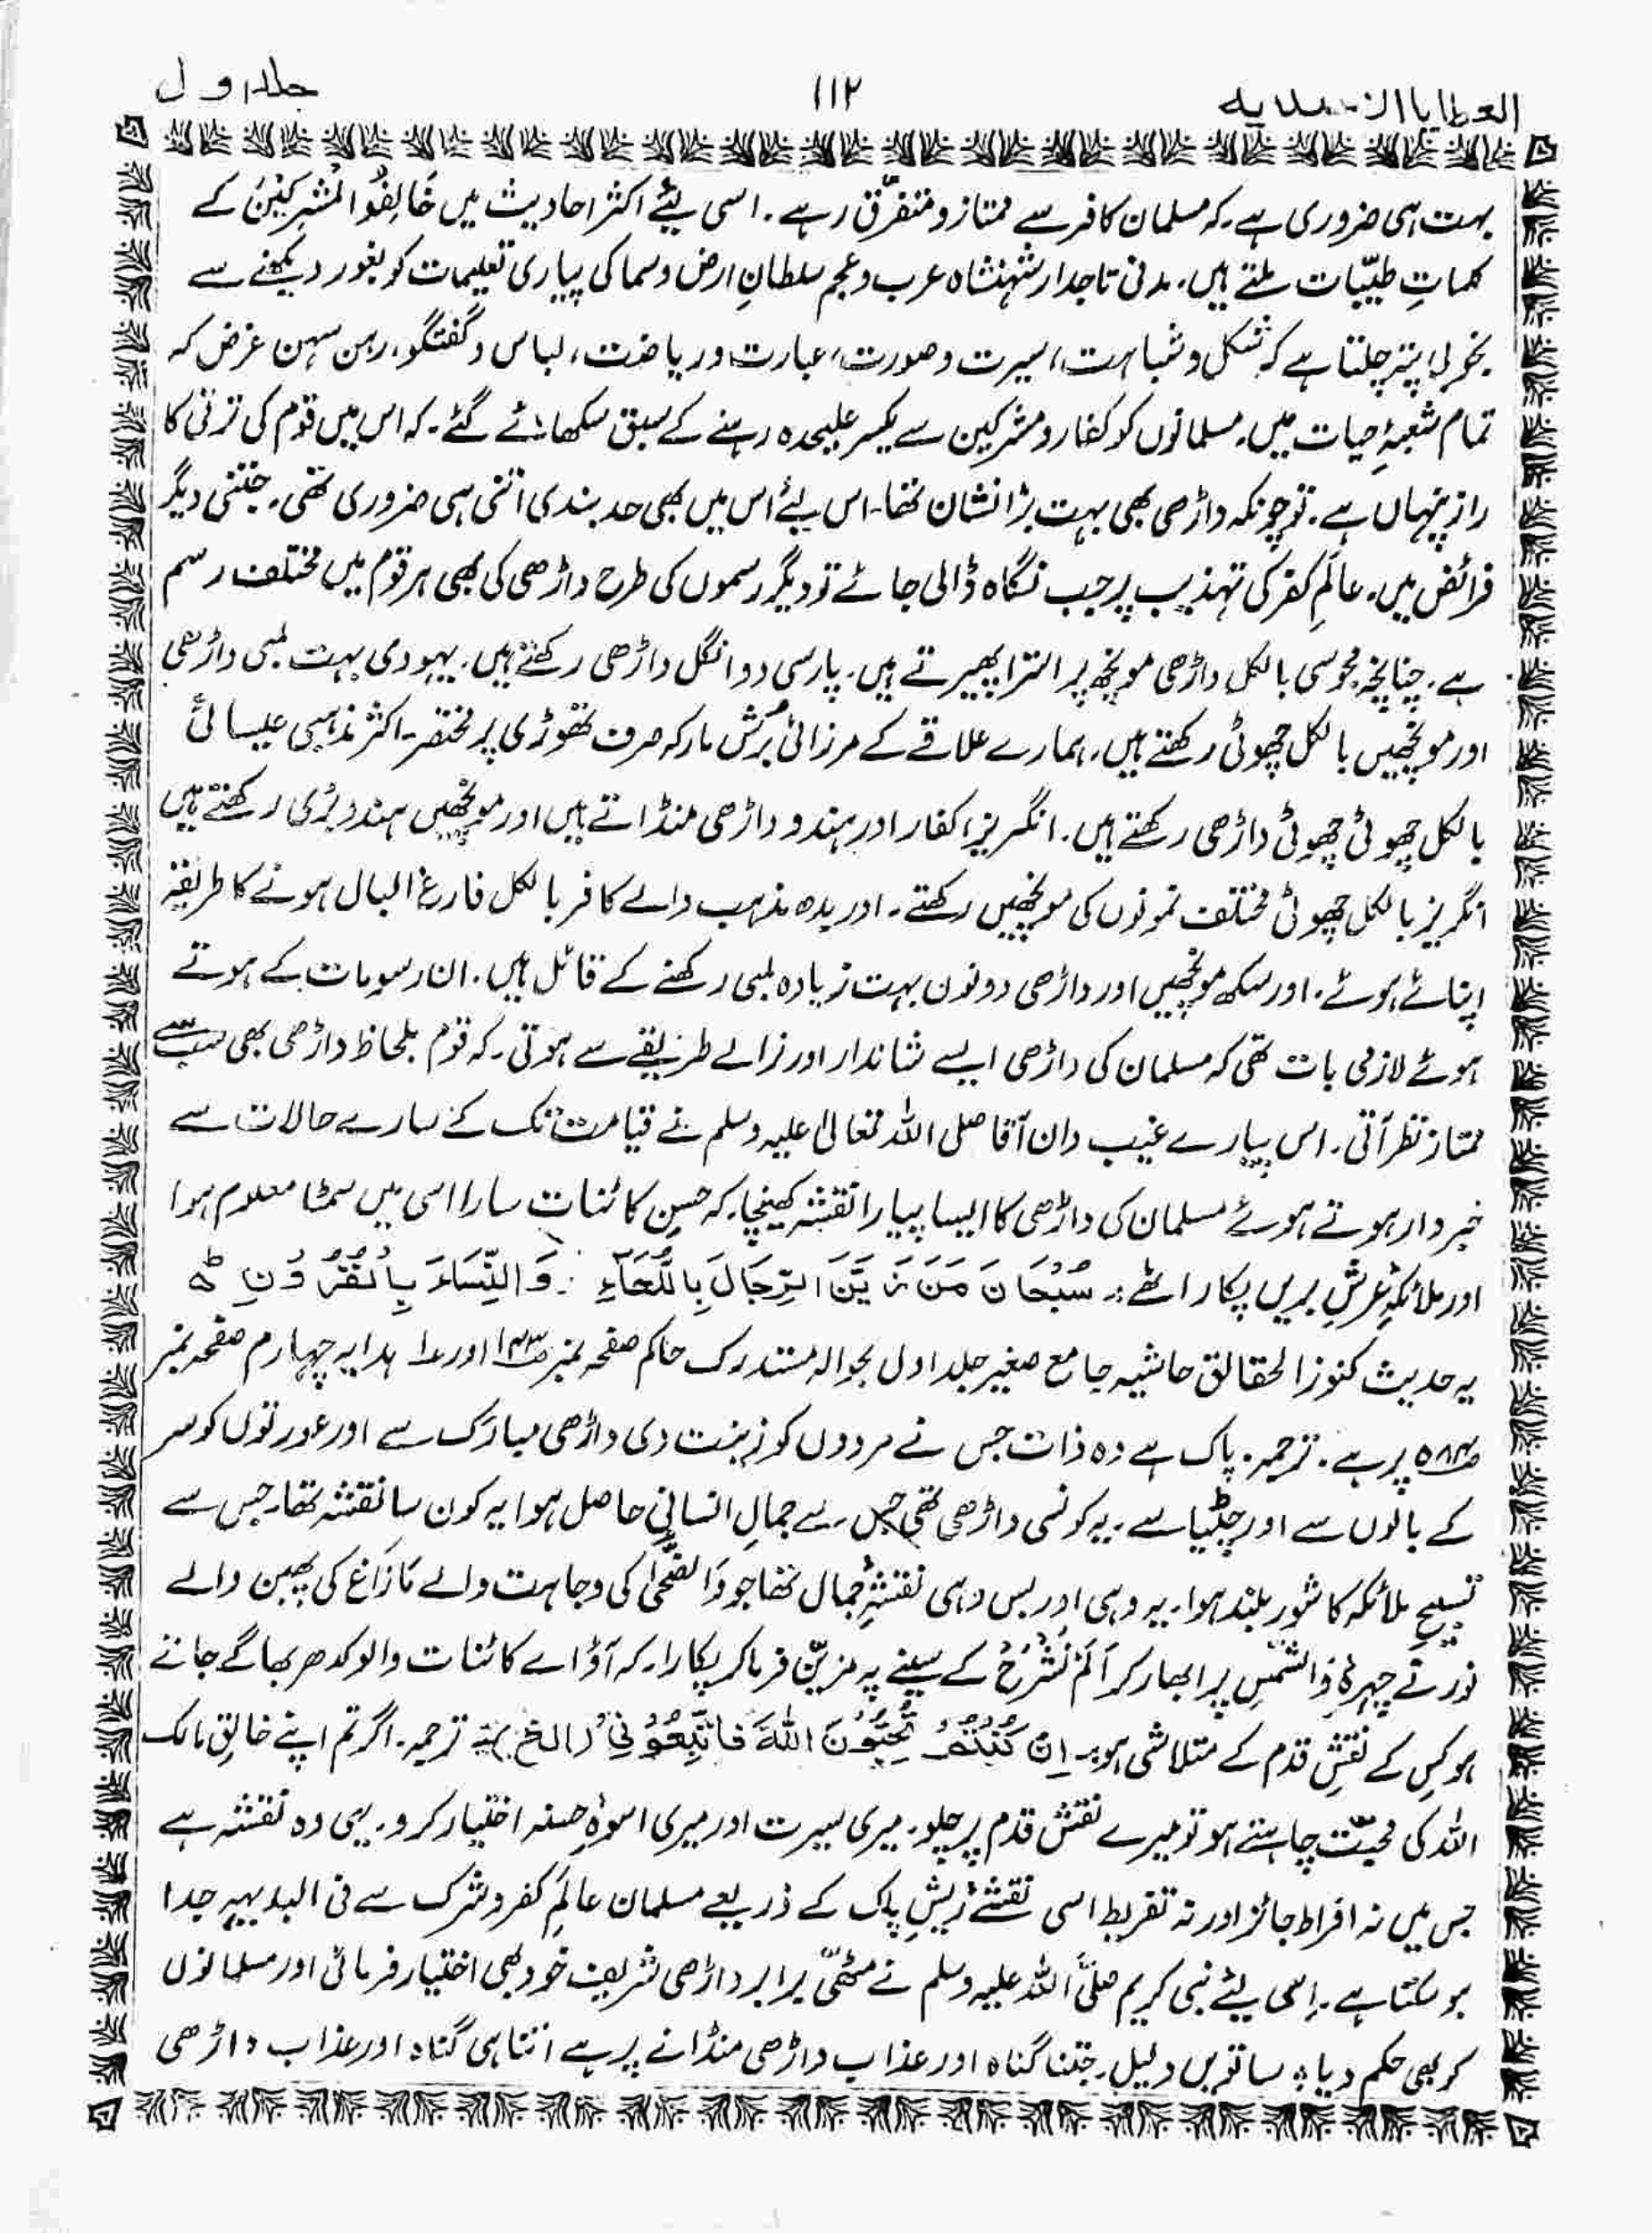 العطایا الاحمدیہ ۱۱۲ جلد اول
بہت ہی ضروری ہے۔ کہ مسلمان کافر سے ممتاز و متفرّق رہے۔ اسی لیئے اکثر احادیث میں خَالِفُوا الْمُشْرِکِیْنَ کے
کلماتِ طیّبات ملتے ہیں۔ مدنی تاجدار شہنشاہ عرب و عجم سلطانِ ارض و سما کی پیاری تعلیمات کو بغور دیکھنے سے
بخوبی پتہ چلتا ہے کہ شکل و شباہت، سیرت و صورت، عبادت و ریاضت، لباس و گفتگو، رہن سہن غرض کہ
تمام شعبۂ حیات میں۔ مسلمانوں کو کفار و مشرکین سے یکسر علیحدہ رہنے کے سبق سکھائے گئے۔ کہ اس میں قوم کی ترقی کا
راز پنہاں ہے۔ تو چونکہ داڑھی بھی بہت بڑا نشان تھا۔ اس لیئے اس میں بھی حد بندی اتنی ہی ضروری تھی۔ جتنی دیگر
فرائض میں۔ عالَمِ کفر کی تہذیب پر جب نگاہ ڈالی جائے تو دیگر رسموں کی طرح داڑھی کی بھی ہر قوم میں مختلف رسم
ہے۔ چنانچہ مجوسی بالکل داڑھی مونچھ پر استرا پھیرتے ہیں۔ پارسی دو انگل داڑھی رکھتے ہیں۔ یہودی بہت لمبی داڑھی
اور مونچھیں بالکل چھوٹی رکھتے ہیں۔ ہمارے علاقے کے مرزائی بُرش مارکہ صرف تھوڑی پر مختصر۔ اکثر مذہبی عیسائی
بالکل چھوٹی چھوٹی داڑھی رکھتے ہیں۔ انگریز، کفار اور ہندو داڑھی منڈاتے ہیں اور مونچھیں ہندو بڑی رکھتے ہیں
انگریز بالکل چھوٹی مختلف نمونوں کی مونچھیں رکھتے۔ اور بدھ مذہب والے کافر بالکل فارغ البال ہونے کا طریقہ
اپنائے ہوئے۔ اور سکھ مونچھیں اور داڑھی دونوں بہت زیادہ لمبی رکھنے کے قائل ہیں۔ ان رسومات کے ہوتے
ہوئے لازمی بات تھی کہ مسلمان کی داڑھی ایسے شاندار اور نرالے طریقے سے ہوتی۔ کہ قوم بلحاظ داڑھی بھی سب سے
ممتاز نظر آتی۔ اس پیارے غیب دان آقا صلی اللہ تعالیٰ علیہ وسلم نے قیامت تک کے سارے حالات سے
خبردار ہوتے ہوئے مسلمان کی داڑھی کا ایسا پیارا نقشہ کھینچا۔ کہ حسنِ کائنات سارا اسی میں سمٹا معلوم ہوا
اور ملائکۂ عرشِ بریں پکار اٹھے :۔ سُبْحَانَ مَنْ زَیَّنَ الرِّجَالَ بِاللُّحَآءِ وَ النِّسَاءَ بِالْقُرُوْنِ ط
یہ حدیث کنوز الحقائق حاشیہ جامع صغیر جلد اول بحوالہ مستدرک حاکم صفحہ نمبر ص۱۴۳ اور ہدایہ چہارم صفحہ نمبر
ص۵۸۴ پر ہے۔ ترجمہ۔ پاک ہے وہ ذات جس نے مردوں کو زینت دی داڑھی مبارک سے اور عورتوں کو سر
کے بالوں سے اور چٹیا سے۔ یہ کونسی داڑھی تھی جس سے جمالِ انسانی حاصل ہوا یہ کون سا نقشہ تھا۔ جس سے
تسبیحِ ملائکہ کا شور بلند ہوا۔ یہ وہی اور بس وہی نقشۂ جمال تھا جو وَالضُّحٰی کی وجاہت والے مَازَاغَ کی پھبن والے
نور نے چہرۂ وَالشَّمْسِ پر ابھار کر اَلَمْ نَشْرَحْ کے سینے پہ مزیّن فرما کر پکارا۔ کہ آؤ اے کائنات والو کدھر بھاگے جاتے
ہو کس کے نقشِ قدم کے متلاشی ہو :۔ اِنْ کُنْتُمْ تُحِبُّوْنَ اللّٰہَ فَاتَّبِعُوْنِیْ (الخ) ترجمہ۔ اگر تم اپنے خالق مالک
اللہ کی محبّت چاہتے ہو تو میرے نقشِ قدم پر چلو۔ میری سیرت اور میری اسوۂ حسنہ اختیار کرو۔ یہی وہ نقشہ ہے
جس میں نہ افراط جائز اور نہ تفریط اسی نقشۂ ریشِ پاک کے ذریعے مسلمان عالَمِ کفر و شرک سے فی البدیہہ جدا
ہو سکتا ہے۔ اسی لیئے نبی کریم صلَّی اللہ علیہ وسلم نے مٹھّی برابر داڑھی شریف خود بھی اختیار فرمائی اور مسلمانوں
کو بھی حکم دیا :۔ ساتویں دلیل۔ جتنا گناہ اور عذاب داڑھی منڈانے پر ہے اتنا ہی گناہ اور عذاب داڑھی